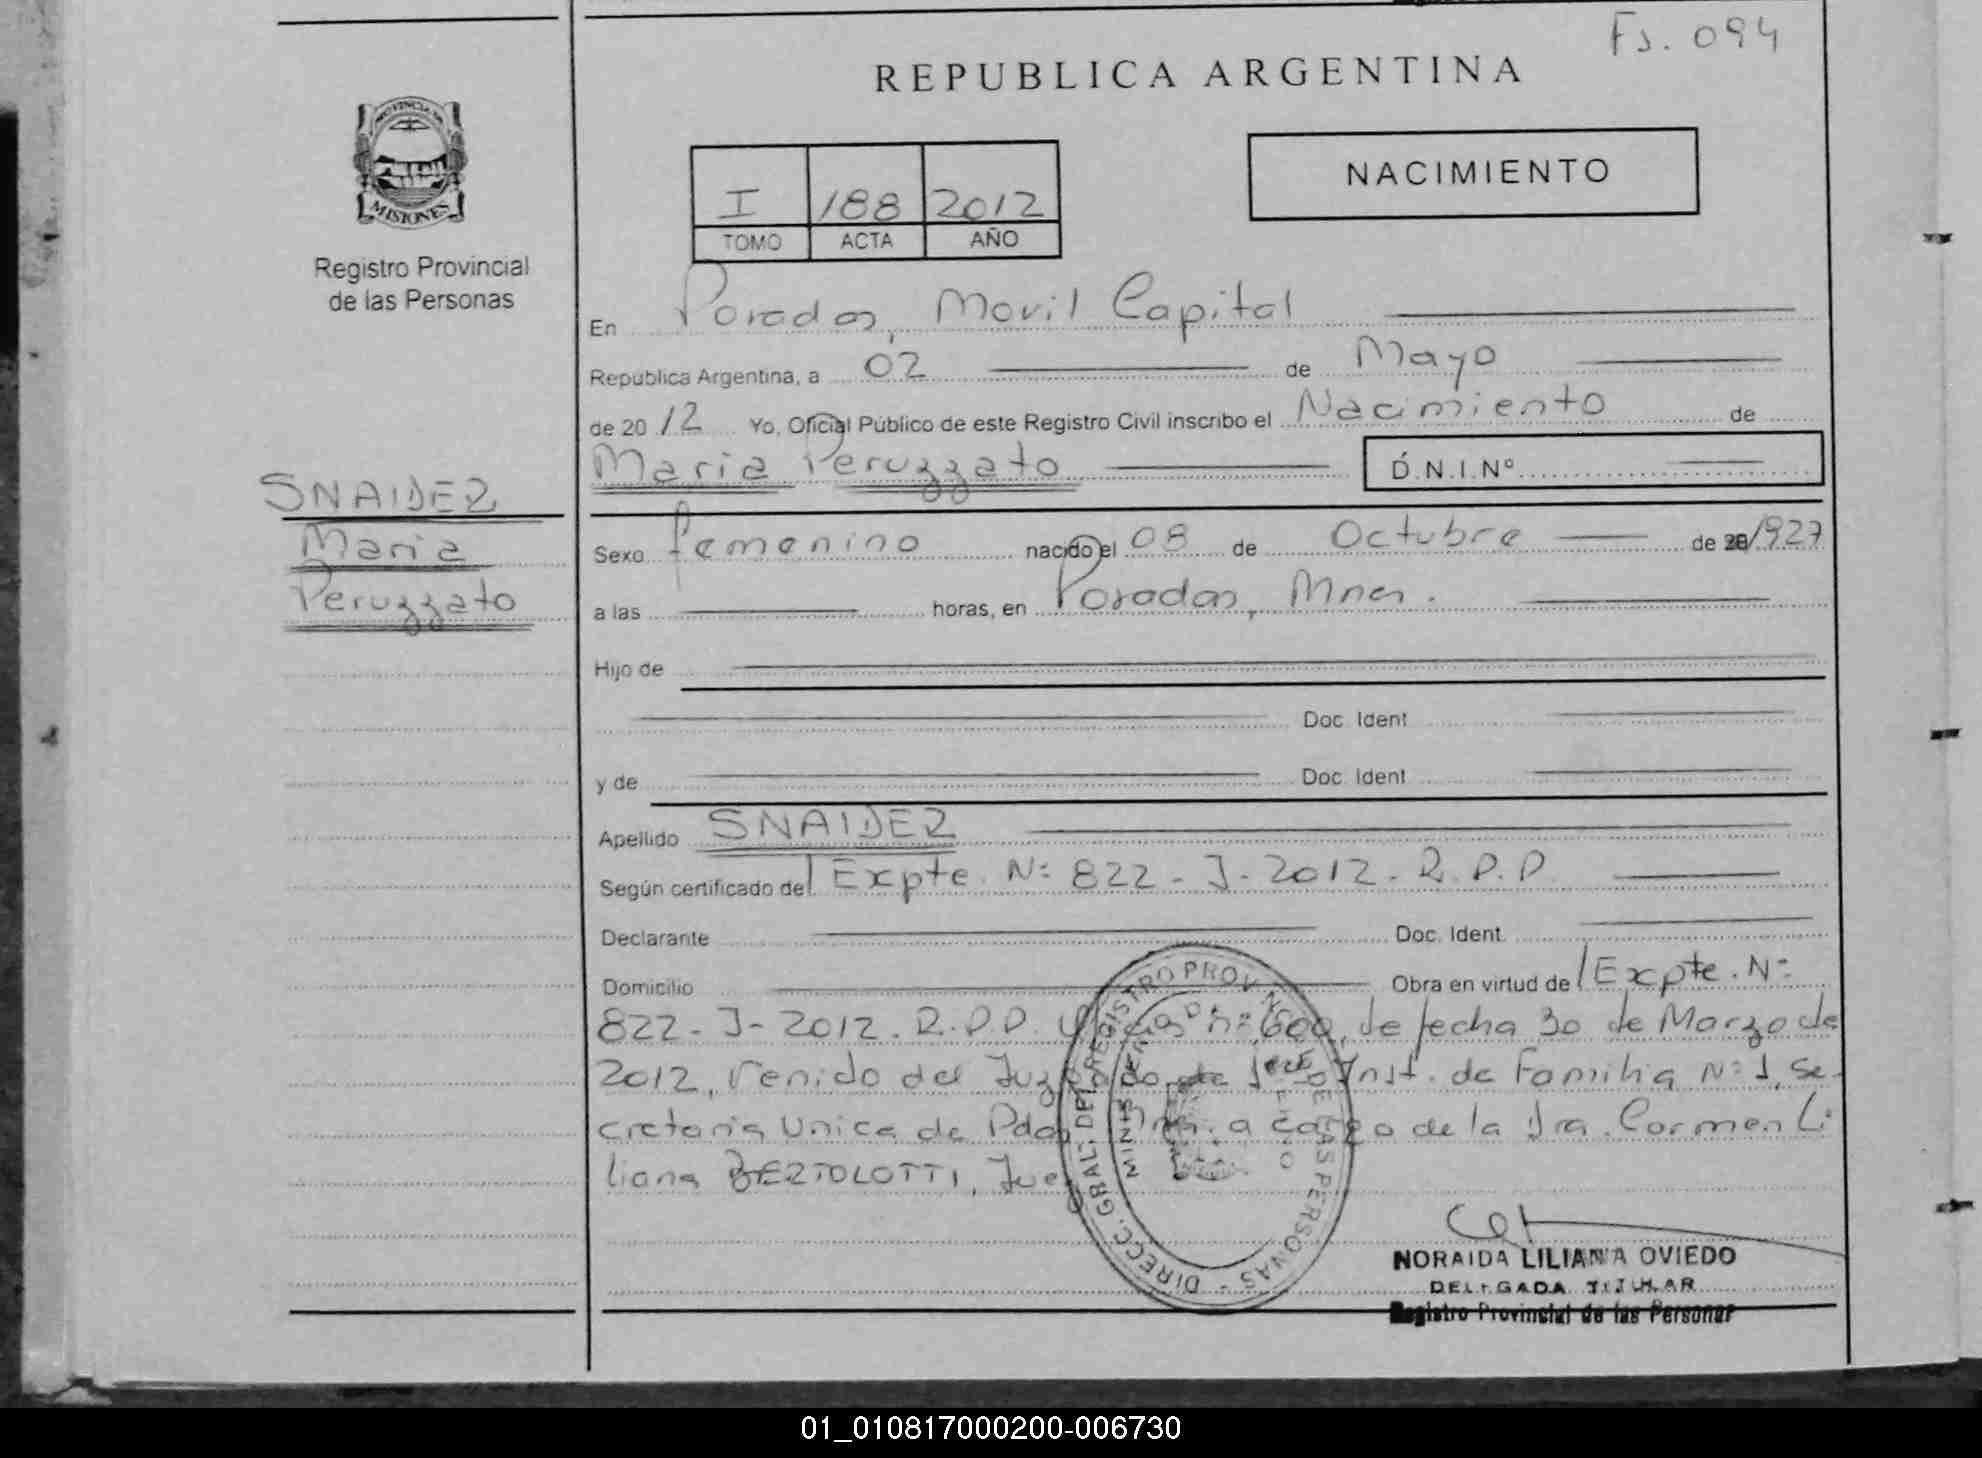 Fs. 094
REPUBLICA ARGENTINA
PROVINCIA DE
MISIONES
Registro Provincial
de las Personas
I 188 2012
TOMO ACTA AÑO
NACIMIENTO
En Posadas, Movil Capital
Republica Argentina, a 02 de Mayo
de 2012 Yo, Oficial Público de este Registro Civil inscribo el Nacimiento de
Maria Peruzzato D.N.I.Nº
SNAIDER
Maria
Peruzzato
Sexo femenino nacido el 08 de Octubre de 1927
a las horas, en Posadas, Mnes.
Hijo de
Doc. Ident.
y de Doc. Ident.
Apellido SNAIDER
Según certificado del Expte. Nº 822-J-2012. R.P.P.
Declarante Doc. Ident.
Domicilio Obra en virtud del Expte. Nº
822-J-2012. R.P.P. Oficio nº 600, de fecha 30 de Marzo de
2012, Venido del Juzgado de 1era Inst. de Familia Nº 1, Se-
cretaria Unica de Pdas, Mnes. a cargo de la Dra. Carmen Li-
liana BERTOLOTTI, Juez
DIRECC. GRAL. DEL REGISTRO PROVINCIAL DE LAS PERSONAS
NORAIDA LILIANA OVIEDO
DELEGADA TITULAR
Registro Provincial de las Personas
01_010817000200-006730